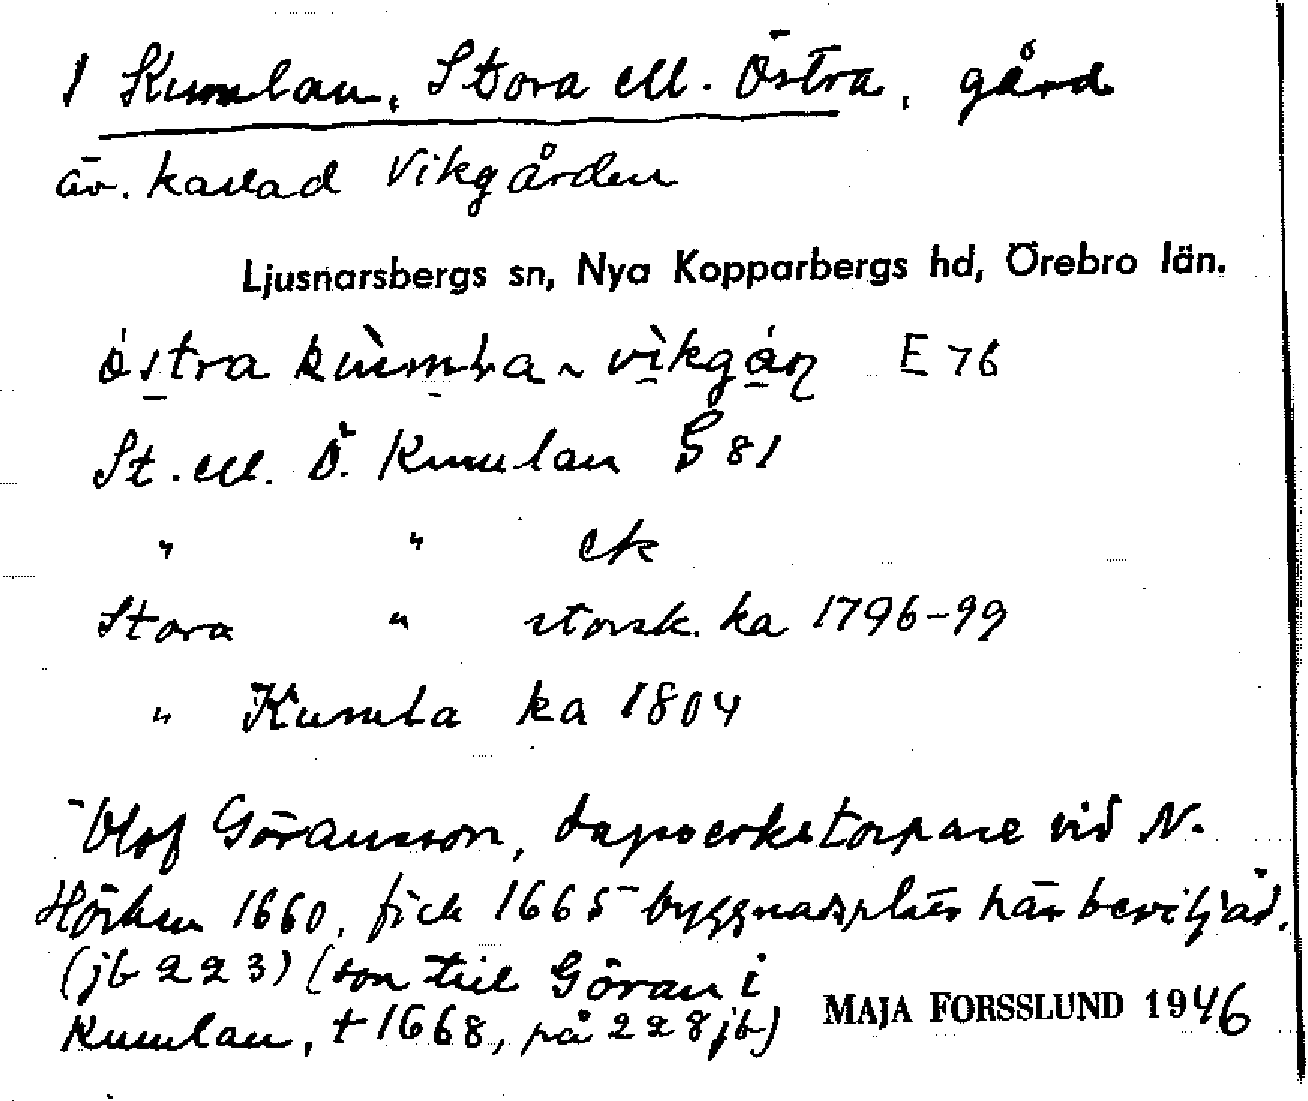 1 Kumlan, Stora ell. Östra, gård
äv. kallad Vikgården
Ljusnarsbergs sn, Nya Kopparbergs hd, Örebro län.
östra kùmla ~ vìkgán E 76
St. ell. Ö. Kumlan G 81
" " ek
Stora " storsk. ka 1796-99
" Kumla ka 1804
Olof Göransson, dagsverkstorpare vid N.
Hörken 1660, fick 1665 byggnadsplats här beviljad.
(jb 223) (son till Göran i
Kumlan, + 1668, på 228 jb)
MAJA FORSSLUND 1946